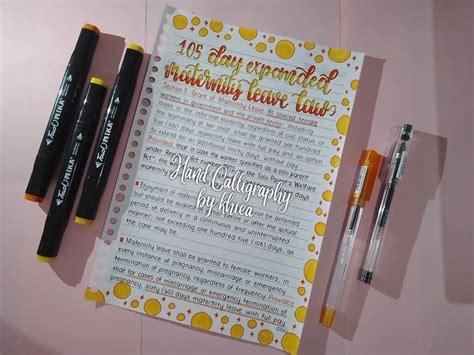 105 day expanded
maternity leave law
Section 3. Grant of Maternity Leave. All covered female
workers in government and the private sector, including
those in the informal economy, regardless of civil status or
the legitimacy of her child, shall be granted one hundred
five (105) days maternity leave with full pay and an option
to extend for an additional thirty (30) days without pay:
Provided, that in case the worker qualifies as a solo parent
under Solo Parent's Welfare
Act", the
Enjoyment of maternity be deferred
but should be availed of either before or after the actual
period of delivery in a continuous and uninterrupted
manner, not exceeding one hundred five (105) days, as
the case may be.
Maternity leave shall be granted to female workers in
every instance of pregnancy, miscarriage or emergency
termination of pregnancy, regardless of frequency: Provided
that for cases of miscarriage or emergency termination of
pregnancy, sixty (60) days maternity leave with full pay
Hand Calligraphy
by khrea
Touch MIKA
Touch MIKA
Touch MIKA